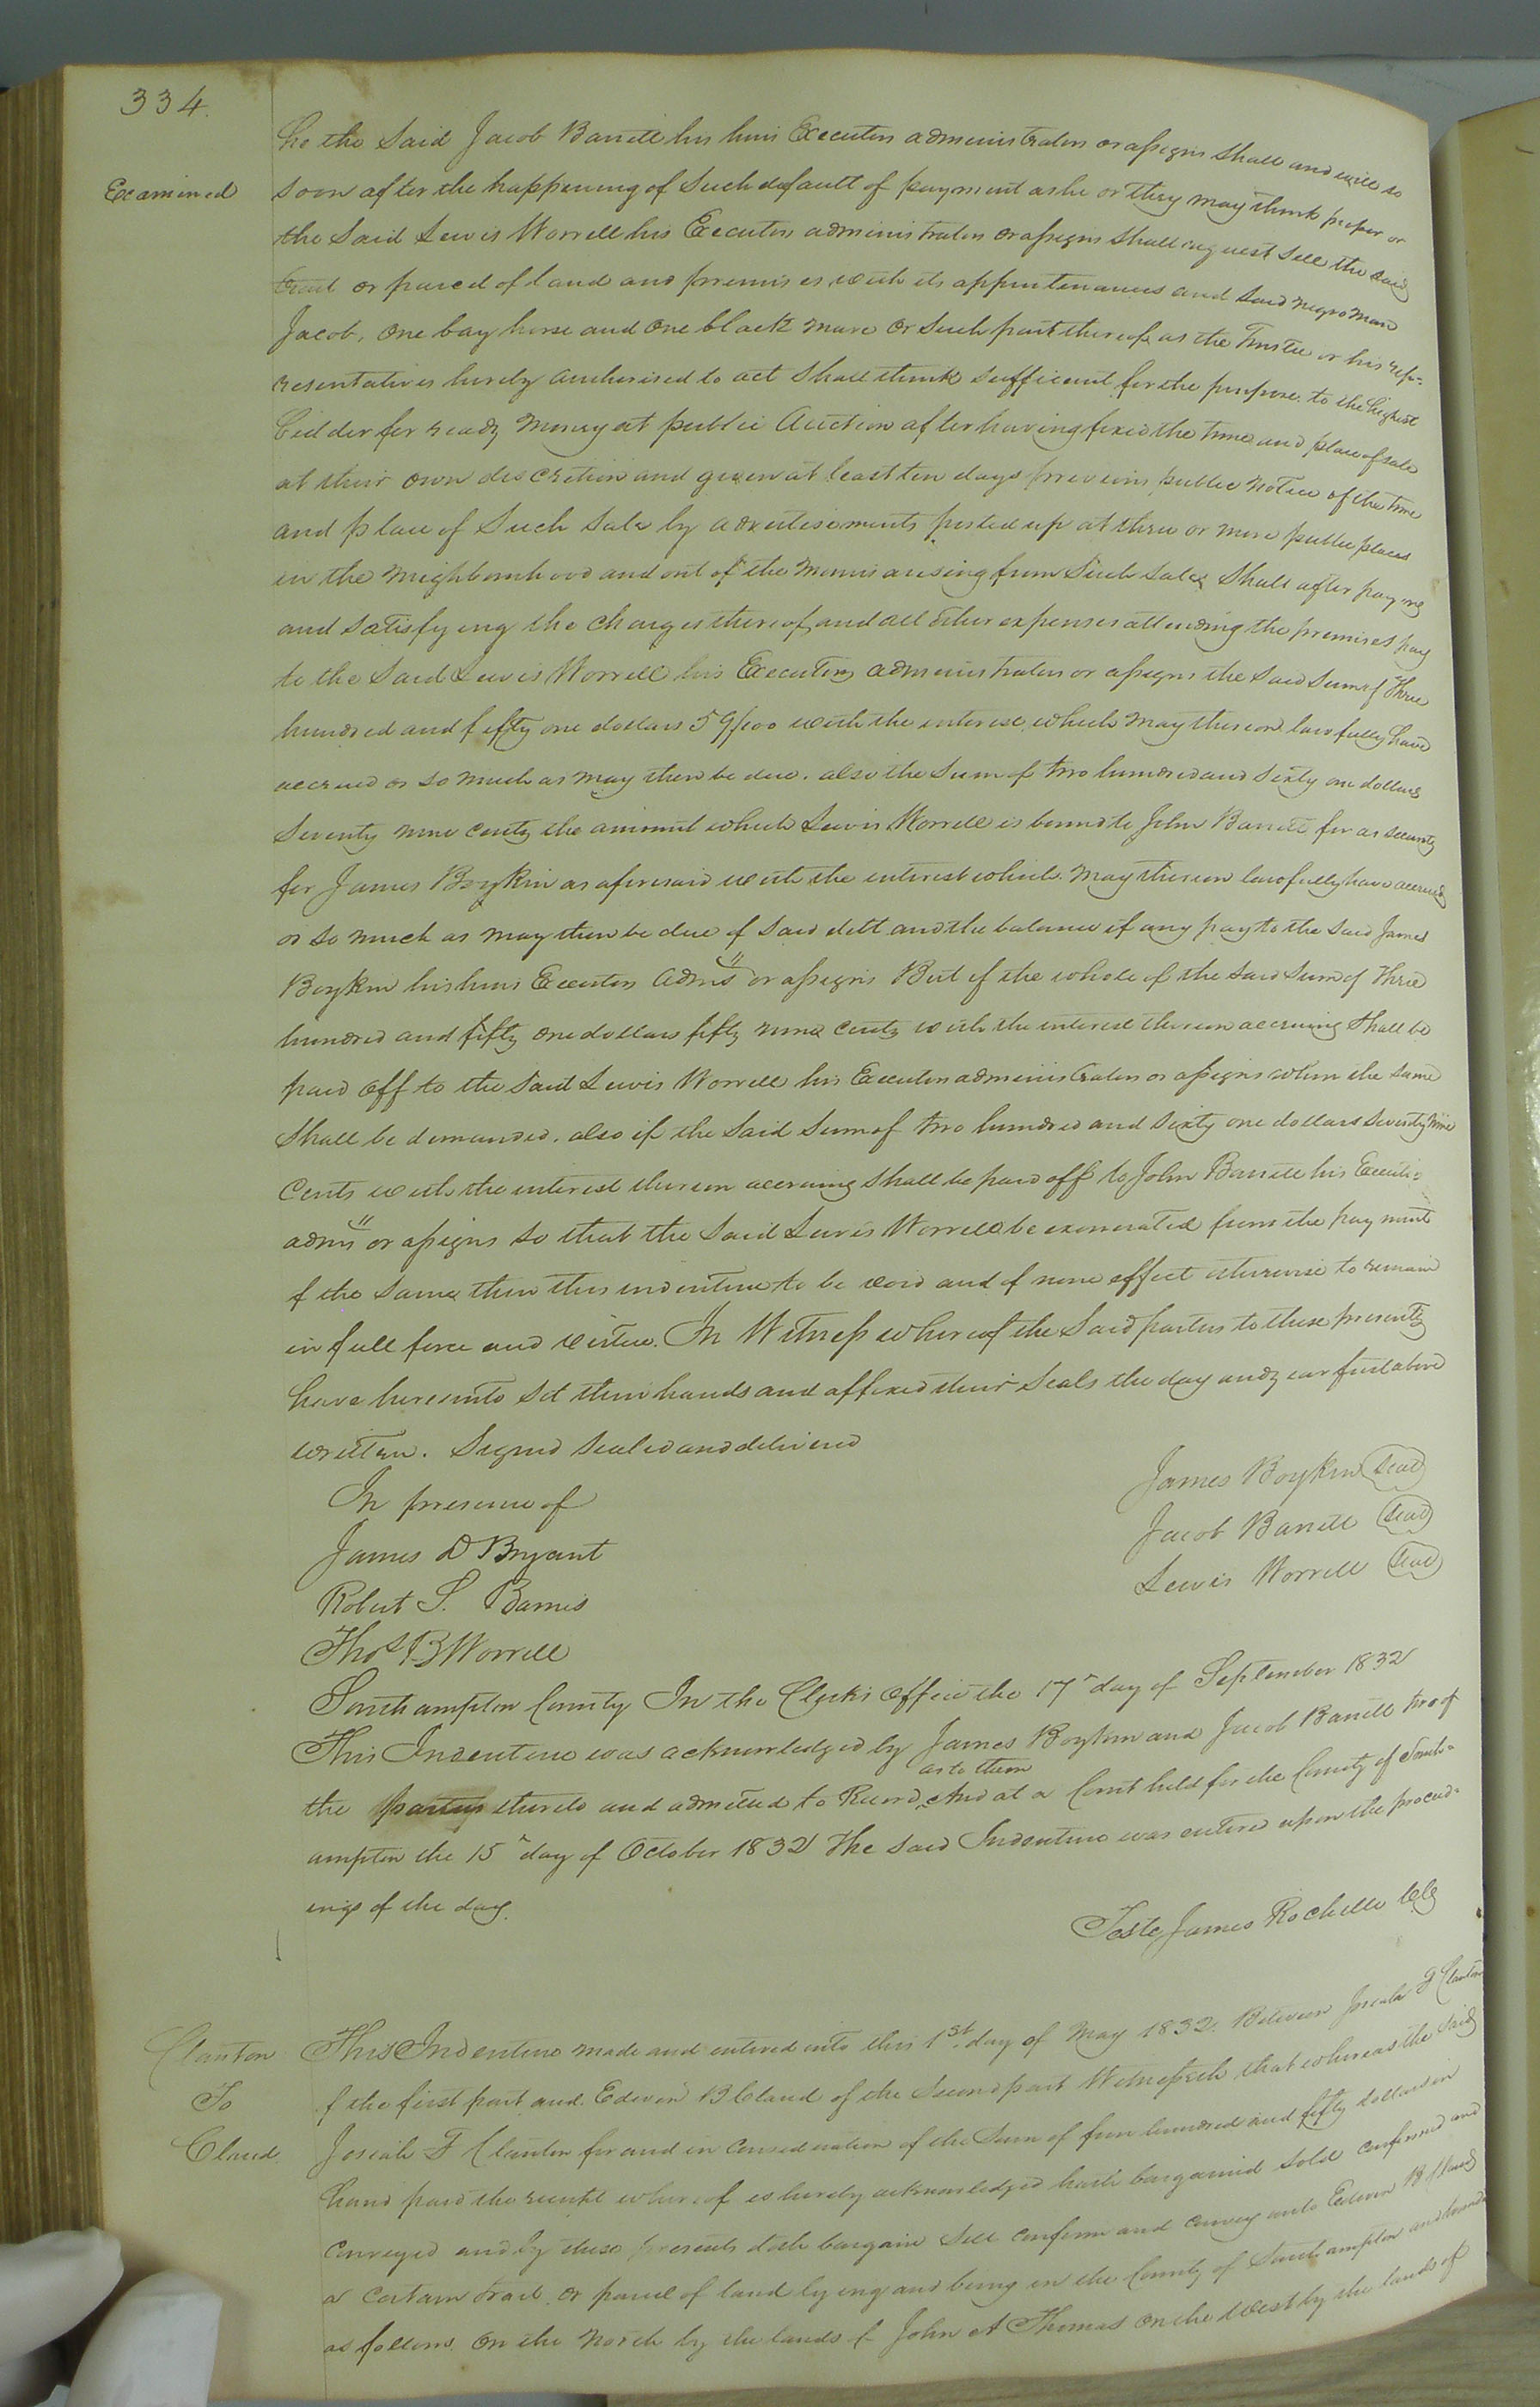 334.
he the Said Jacob Barrett his heirs Executors administrators or assigns shall and will so
Examined
soon after the happening of Such default of payment as he or they may think proper or
the Said Lewis Worrell his Executors administrators or assigns Shall request Sell the said
tract or parcel of land and premises with its appurtenances and said negro man
Jacob, one bay horse and one black mare or Such part thereof as the Trustee or his rep-
resentatives hereby authorised to act Shall think sufficient for the purpose to the highest
bidder for ready money at public Auction after having fixed the time and place of sale
at their own discretion and given at least ten days previous public notice of the time
and place of Such Sale by advertisements posted up at three or more public places
in the neighbourhood and out of the monies arising from Such Sales Shall after paying
and satisfying the charges thereof and all other expenses attending the premises pay
to the Said Lewis Worrell his Executors administrators or assigns the said Sum of Three
hundred and fifty one dollars 59/100 with the interest which may thereon lawfully have
accrued or so much as may then be due. also the Sum of two hundred and sixty one dollars
Seventy nine cents the amount which Lewis Worrell is bound to John Barrett for as security
for James Boykin as aforesaid with the interest which may thereon lawfully have accrued
or so much as may then be due of said debt and the balance if any pay to the said James
Boykin his heirs Executors Admrs or assigns But if the whole of the said Sum of Three
hundred and fifty one dollars fifty nine cents with the interest thereon accruing shall be
paid off to the Said Lewis Worrell his Executors administrators or assigns when the same
Shall be demanded. also if the Said Sum of two hundred and Sixty one dollars seventy nine
Cents with the interest thereon accruing shall be paid off to John Barrett his Executors
admrs or assigns so that the Said Lewis Worrell be exonerated from the payment
of the same then this indenture to be void and of none effect otherwise to remain
in full force and virtue. In Witness whereof the Said parties to these presents
have hereunto Set their hands and affixed their Seals the day and year first above
written. Signed Sealed and delivered
In presence of
James D Bryant
Robert S. Barnes
Thos B Worrell
James Boykin Seal
Jacob Barrett Seal
Lewis Worrell Seal
Southampton County In the Clerks office the 17" day of September 1832
This Indenture was acknowledged by James Boykin and Jacob Barrett two of
as to them
the parties thereto and admitted to Record And at a Court held for the County of South-
ampton the 15" day of October 1832 The said Indenture was entered upon the proceed-
ings of the day.
Teste, James Rochelle
Clanton
To
Claud
This Indenture made and entered into this 1st day of May 1832. Between Josiah F Clanton
of the first part and Edwin B Claud of the Second part Witnesseth that whereas the Said
Josiah F Clanton for and in consideration of the Sum of four hundred and fifty dollars in
hand paid the receipt whereof is hereby acknowledged hath bargained sold confirmed and
Conveyed and by these presents doth bargain Sell confirm and convey unto Edwin B Claud
a Certain tract or parcel of land lying and being in the County of Southampton and bounded
as follows. On the North by the lands of John A Thomas on the West by the lands of